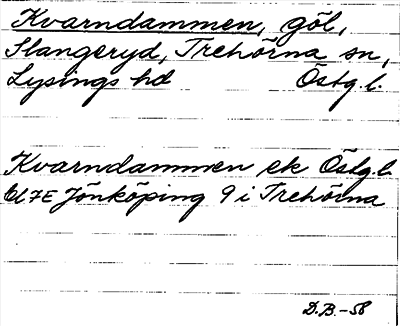 Kvarndammen, göl,
Slangeryd, Trehörna sn,
Lysings hd Östg.l.
Kvarndammen ek Östg.l.
Bl 7E Jönköping 9 i Trehörna
D.B.-58